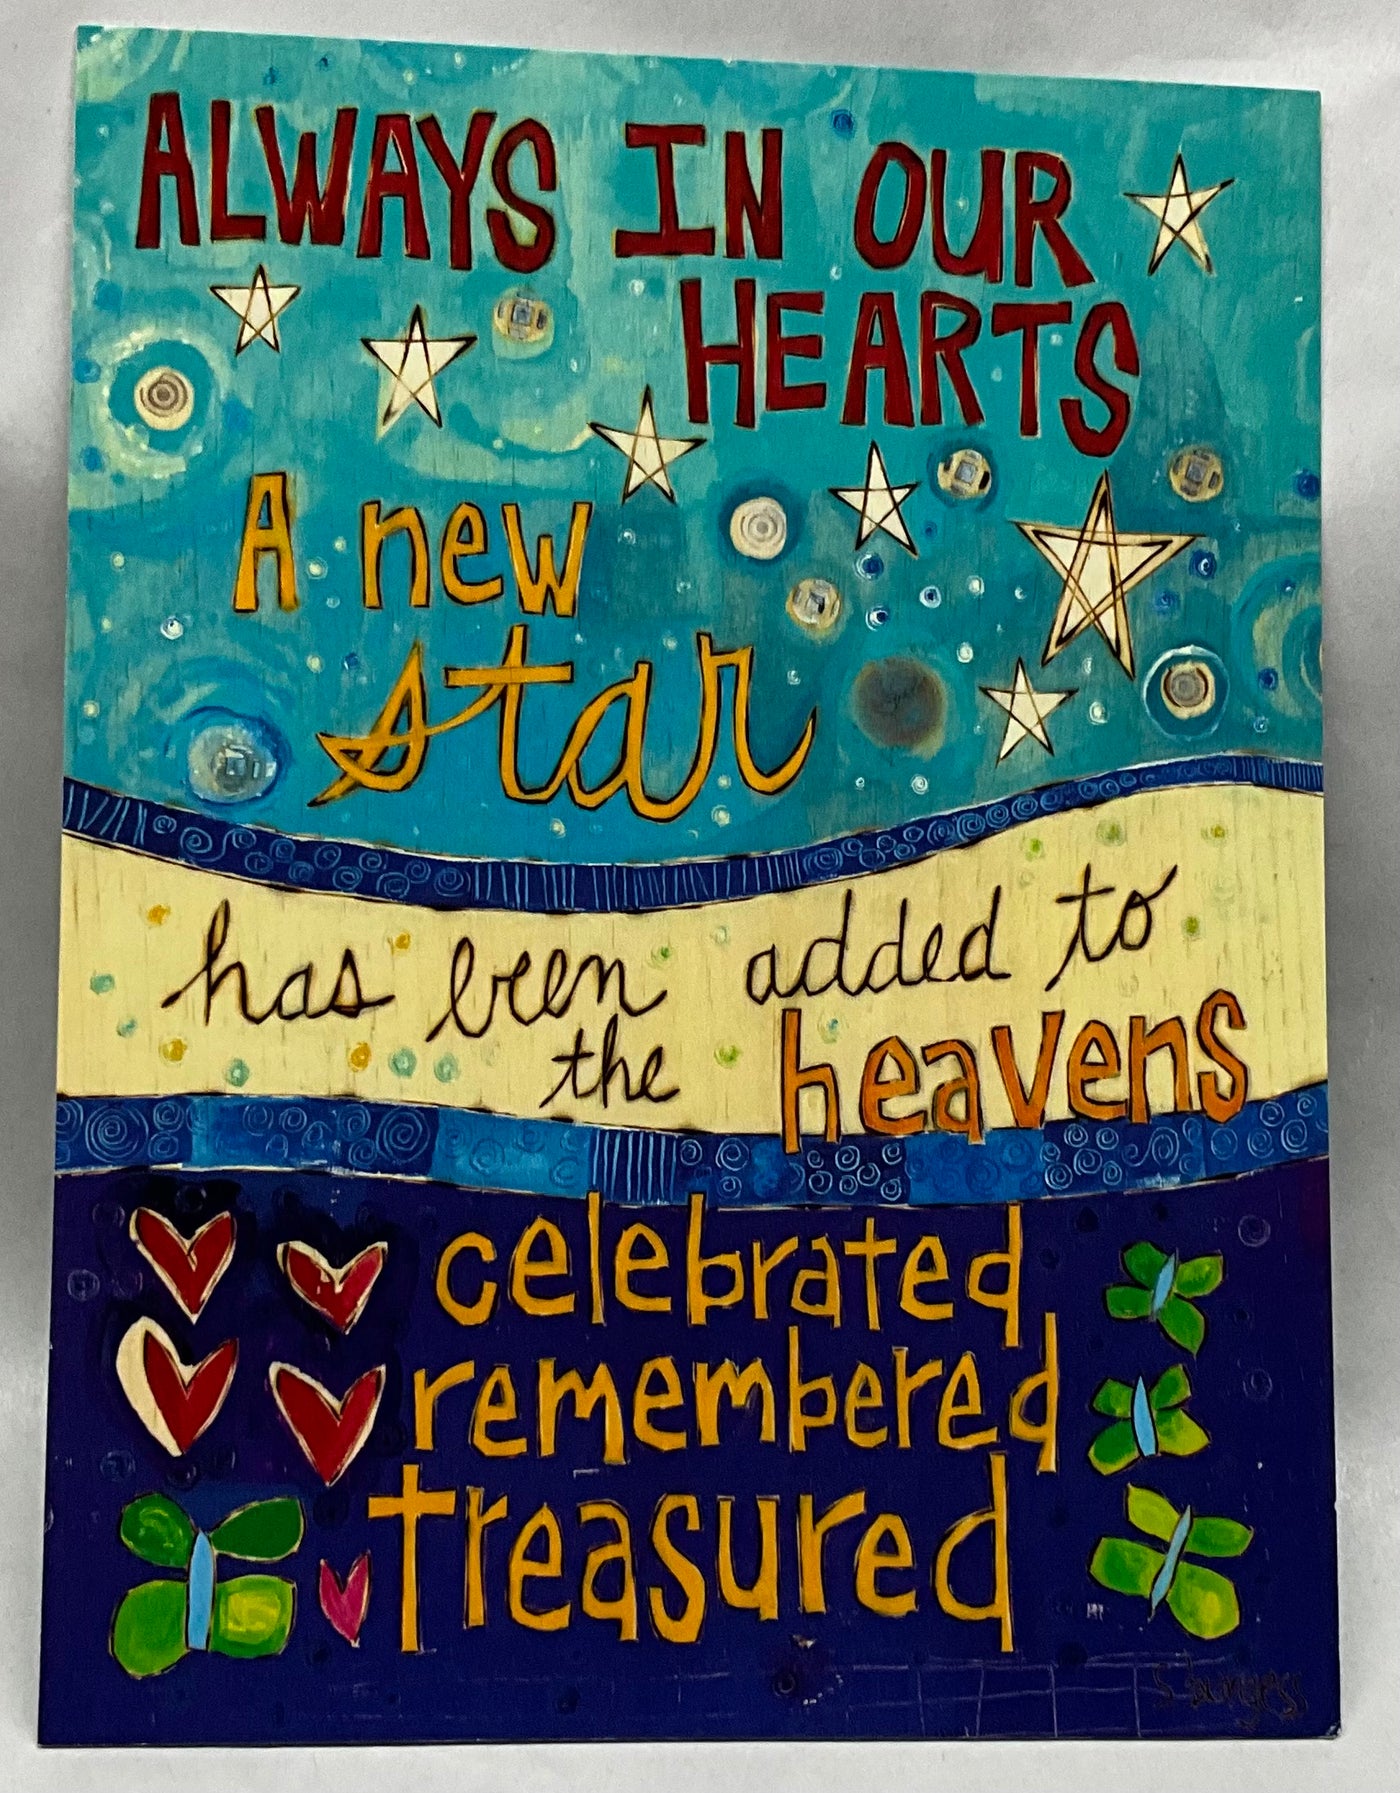 ALWAYS IN OUR
HEARTS
A new
star
has been added to
the heavens
celebrated
remembered
treasured
S. Burgess